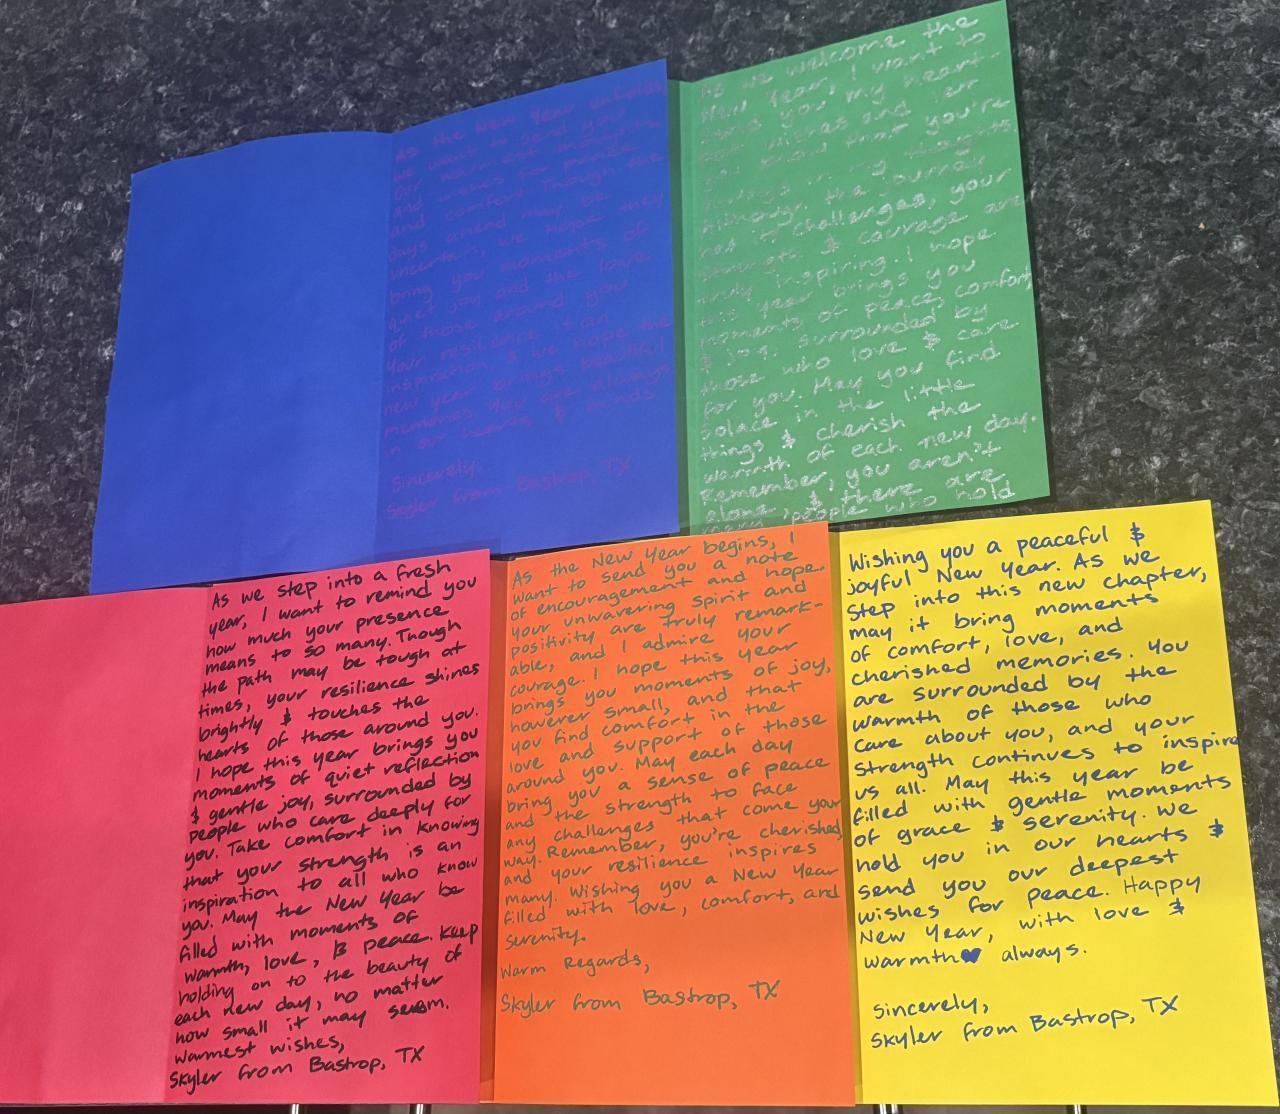 As the New Year unfolds
we want to send you
our warmest thoughts
and wishes for peace
and comfort Though the
days ahead may be
uncertain, we hope they
bring you moments of
quiet joy and the love
of those around you
Your resilience is an
inspiration, & we hope the
new year brings beautiful
memories You are always
in our hearts & minds
Sincerely,
Skyler from Bastrop, TX
As we welcome the
New Year, I want to
send you my heart-
felt wishes and let
you know that you're
always in my thoughts.
Although the journey
has it challenges, your
strength & courage are
truly inspiring. I hope
this year brings you
moments of peace, comfort
& joy, surrounded by
those who love & care
for you. May you find
solace in the little
things & cherish the
warmth of each new day.
Remember, you aren't
alone, & there are
many people who hold
As we step into a fresh
year, I want to remind you
how much your presence
means to so many. Though
the path may be tough at
times, your resilience shines
brightly & touches the
hearts of those around you.
I hope this year brings you
moments of quiet reflection
& gentle joy, surrounded by
people who care deeply for
you. Take comfort in knowing
that your strength is an
inspiration to all who know
you. May the New Year be
filled with moments of
warmth, love, & peace. Keep
holding on to the beauty of
each new day, no matter
how small it may seem.
Warmest wishes,
Skyler from Bastrop, TX
As the New Year begins, I
want to send you a note
of encouragement and hope.
Your unwavering spirit and
positivity are truly remark-
able, and I admire your
courage. I hope this year
brings you moments of joy,
however small, and that
you find comfort in the
love and support of those
around you. May each day
bring you a sense of peace
and the strength to face
any challenges that come your
way. Remember, you're cherished,
and your resilience inspires
many. Wishing you a New Year
filled with love, comfort, and
serenity.
Warm Regards,
Skyler from Bastrop, TX
Wishing you a peaceful &
joyful New Year. As we
step into this new chapter,
may it bring moments
of comfort, love, and
cherished memories. You
are surrounded by the
warmth of those who
care about you, and your
strength continues to inspire
us all. May this year be
filled with gentle moments
of grace & serenity. We
hold you in our hearts &
send you our deepest
wishes for peace. Happy
New Year, with love &
warmth always.
Sincerely,
Skyler from Bastrop, TX